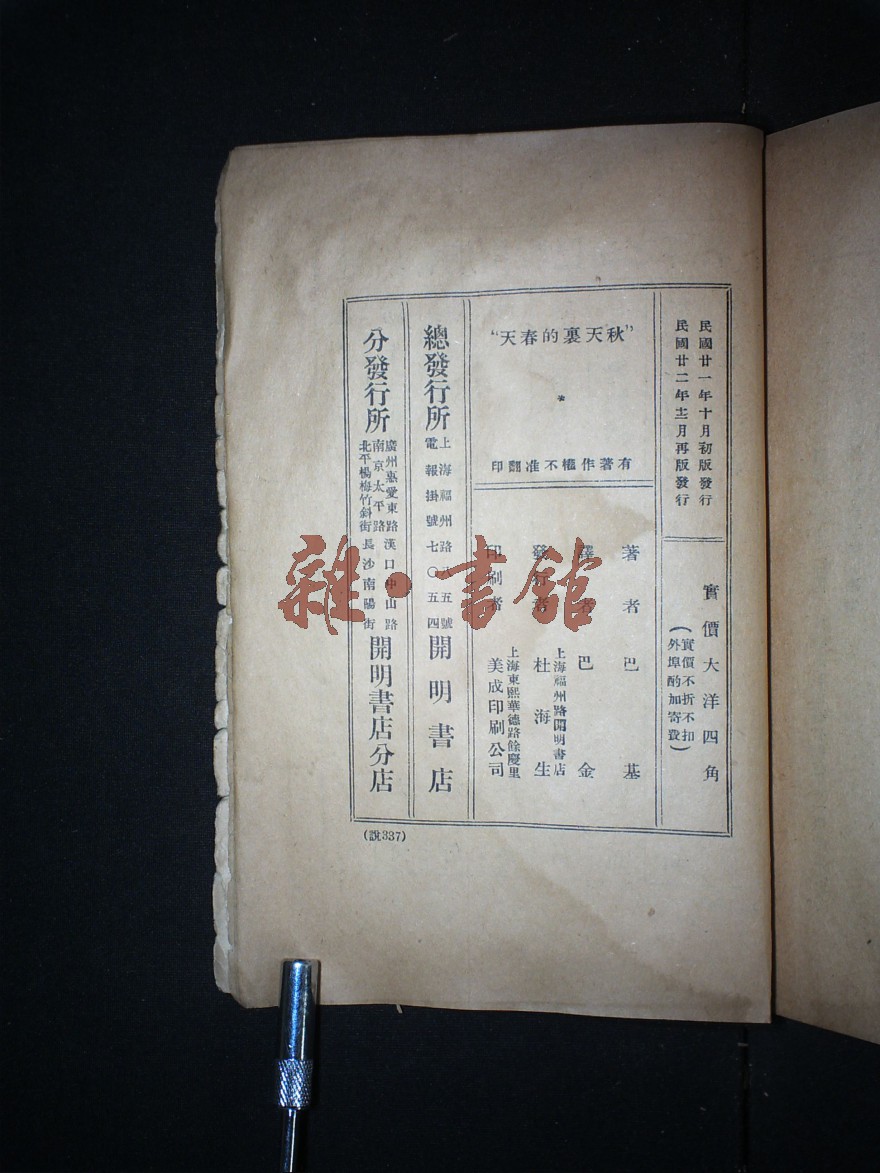 民國廿一年十月初版發行
民國廿二年十二月再版發行
實價大洋四角
(實價不折不扣
外埠酌加寄費)
“秋天裏的春天”
*
有著作權不准翻印
著者 巴基
譯者 巴金
發行者 上海福州路開明書店
杜海生
印刷者 上海東熙華德路餘慶里
美成印刷公司
總發行所 上海福州路八五號
電報掛號七〇五四
開明書店
分發行所 廣州惠愛東路 漢口中山路
南京太平路
北平楊梅竹斜街 長沙南陽街
開明書店分店
(說337)
雜·書館